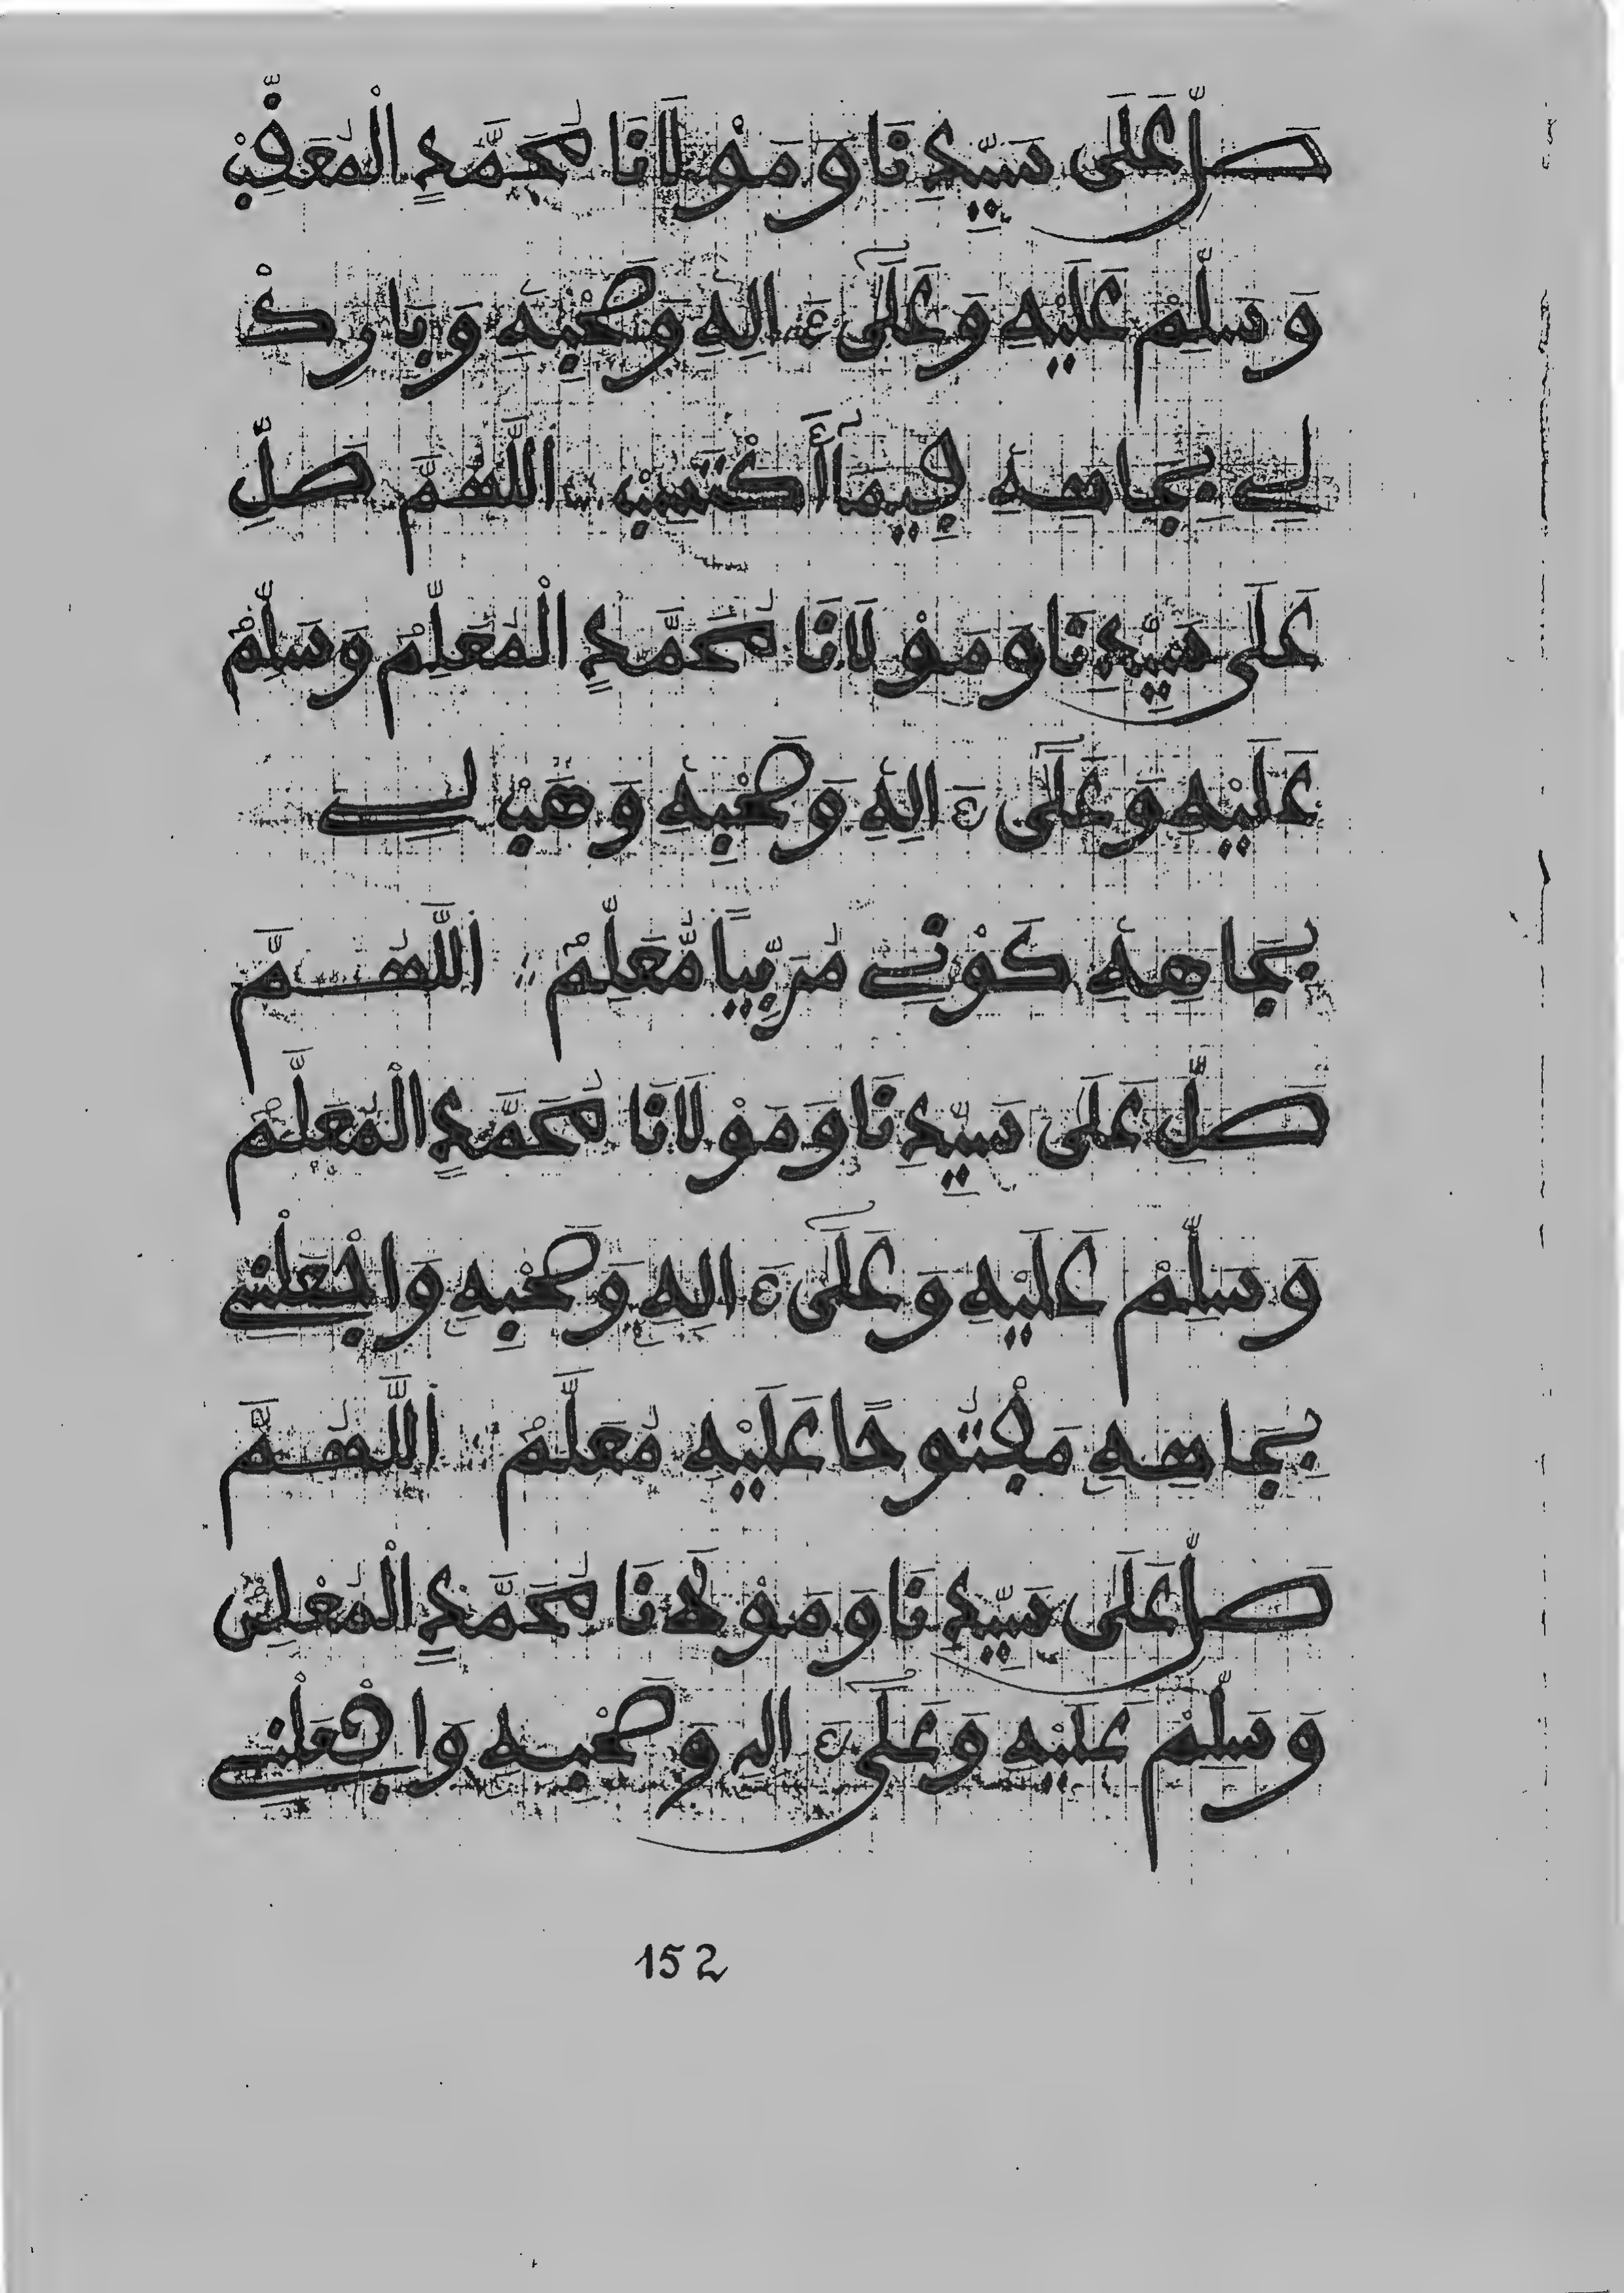 صَلِّ عَلَى سَيِّدِنَا وَمَوْلَانَا مُحَمَّدٍ الْمُعَقِّبْ
وَسَلِّمْ عَلَيْهِ وَعَلَىٰ ءَالِهِ وَصَحْبِهِ وَبَارِكْ
لِے بِجَاهِهِ فِيمَا أَكْتَسِبْ اللَّهُمَّ صَلِّ
عَلَى سَيِّدِنَا وَمَوْلَانَا مُحَمَّدٍ الْمُعَلِّمْ وَسَلِّمْ
عَلَيْهِ وَعَلَىٰ ءَالِهِ وَصَحْبِهِ وَهَبْ لِے
بِجَاهِهِ كَوْنِے مُرَبِّيًا مُّعَلِّمْ اللَّهُمَّ
صَلِّ عَلَى سَيِّدِنَا وَمَوْلَانَا مُحَمَّدٍ الْمُعَلَّمْ
وَسَلِّمْ عَلَيْهِ وَعَلَىٰ ءَالِهِ وَصَحْبِهِ وَاجْعَلْنِے
بِجَاهِهِ مَفْتُوحًا عَلَيْهِ مُعَلَّمْ اللَّهُمَّ
صَلِّ عَلَى سَيِّدِنَا وَمَوْلَانَا مُحَمَّدٍ الْمُعْلِنْ
وَسَلِّمْ عَلَيْهِ وَعَلَىٰ ءَالِهِ وَصَحْبِهِ وَاجْعَلْنِے
152